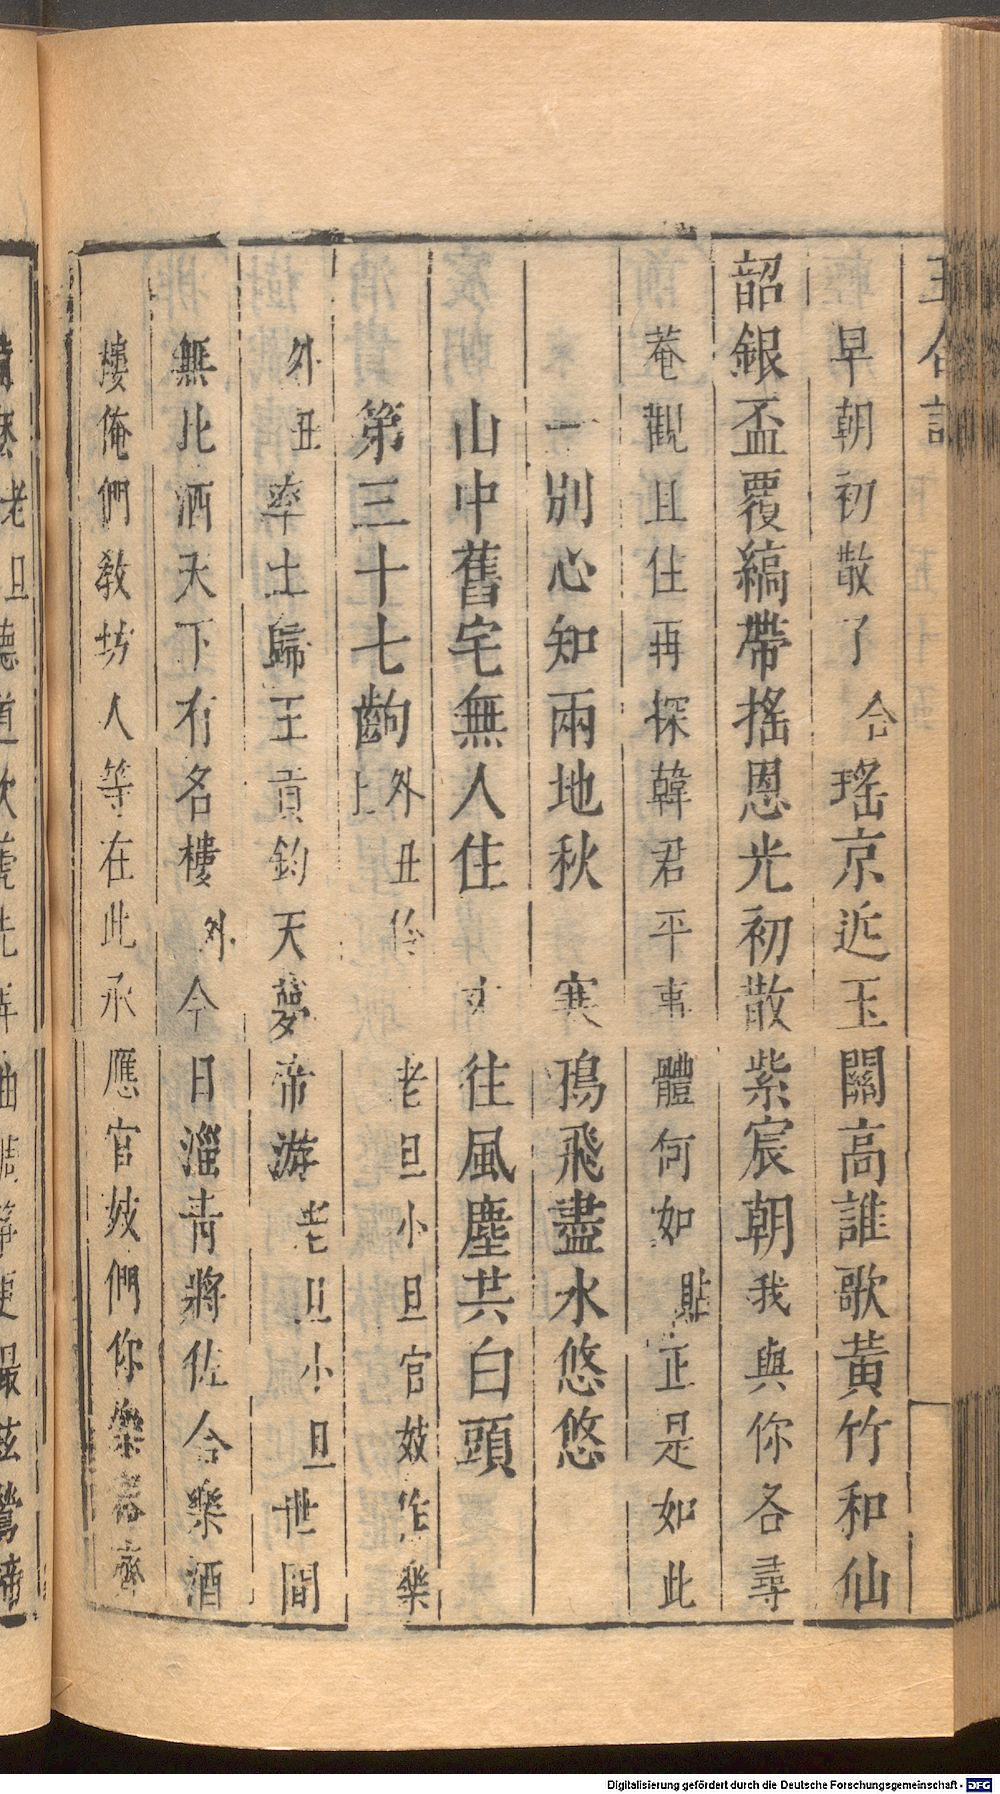 玉合記
早朝初散了合瑤京近玉關高誰歌黃竹和仙
韶銀盃覆縞帶搖恩光初散紫宸朝我與你各尋
菴觀且住再探韓君平事體何如貼正是如此
一別心知兩地秋 寒鴉飛盡水悠悠
山中舊宅無人住 來往風塵共白頭
第三十七齣外丑伶上老旦小旦官妓作樂
外丑率土歸王貢鈞天夢帝游老旦小旦世間
無此酒天下有名樓外今日淄青將佐合樂酒
樓俺們教坊人等在此承應官妓們你樂器齊
老旦
Digitalisierung gefördert durch die Deutsche Forschungsgemeinschaft - DFG